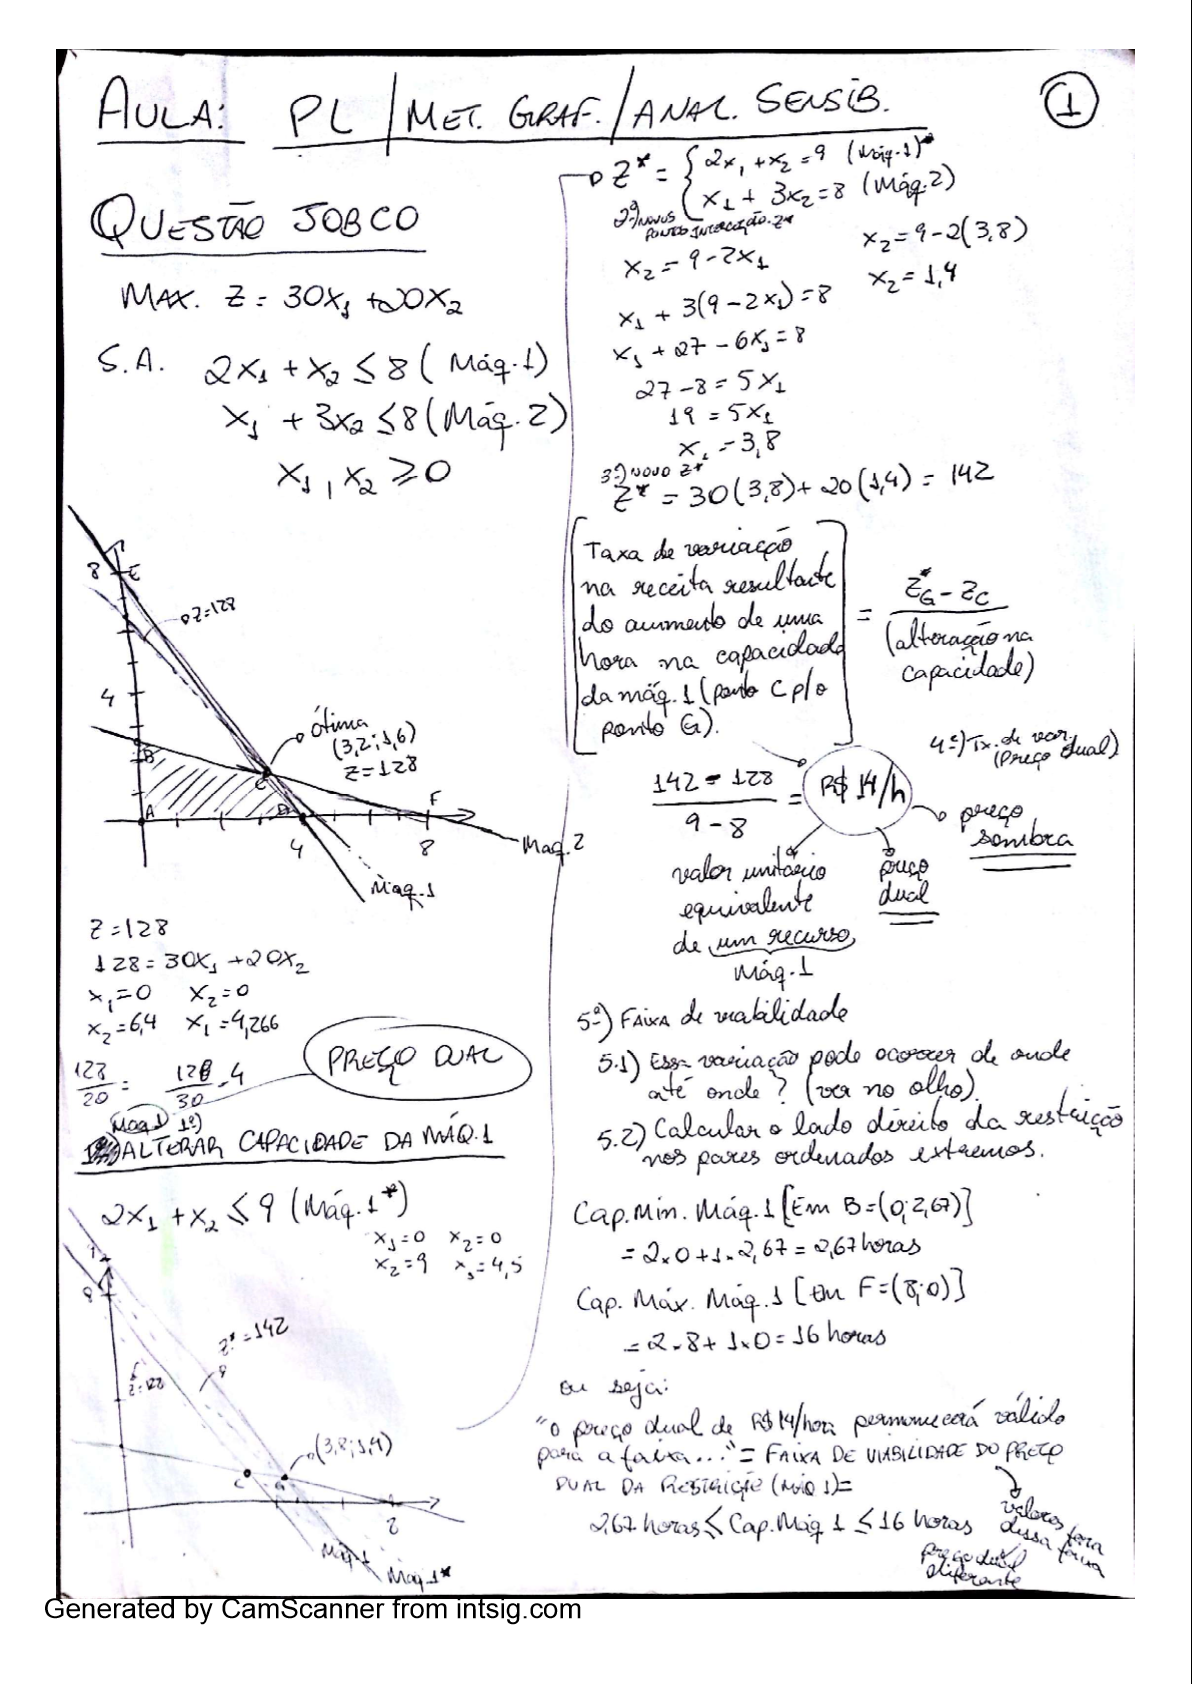 AULA: PL/MET. GRAF./ANAL. SENSIB.
1
QUESTÃO JOBCO
MAX. Z = 30X1 + 20X2
S.A. 2X1 + X2 ≤ 8 (Máq. 1)
X1 + 3X2 ≤ 8 (Máq. 2)
X1, X2 ≥ 0
8
E
Z=128
4
ótima
(3,2; 1,6)
Z=128
B
C
A
D
F
4
8
Maq. 2
Maq. 1
Z=128
128 = 30X1 + 20X2
X1=0 X2=0
X2=6,4 X1=4,266
128/20 = 128/30 = 4
PREÇO DUAL
Maq 1 1º)
ALTERAR CAPACIDADE DA MÁQ. 1
2X1 + X2 ≤ 9 (Máq. 1*)
X1=0 X2=0
X2=9 X1=4,5
Z*=142
Z=128
(3,8; 1,4)
C
G
Máq 1
Máq 1*
Z* = { 2X1 + X2 = 9 (Máq. 1)*
X1 + 3X2 = 8 (Máq. 2)
2º) NOVOS
PONTOS INTERCEÇÃO Z*
X2 = 9 - 2X1
X1 + 3(9 - 2X1) = 8
X1 + 27 - 6X1 = 8
27 - 8 = 5X1
19 = 5X1
X1 = 3,8
X2 = 9 - 2(3,8)
X2 = 1,4
3º) NOVO Z*
Z* = 30(3,8) + 20(1,4) = 142
Taxa de variação
na receita resultante
do aumento de uma
hora na capacidade
da máq. 1 (ponto C p/ o
ponto G).
= Z*G - ZC / (alteração na
capacidade)
4º) Tx. de var.
(Preço dual)
142 - 128 / 9 - 8 = R$ 14/h
preço
sombra
preço
dual
valor unitário
equivalente
de um recurso
Máq. 1
5º) FAIXA de viabilidade
5.1) Essa variação pode ocorrer de onde
até onde? (ver no olho).
5.2) Calcular o lado direito da restrição
nos pares ordenados extremos.
Cap. Mín. Máq. 1 [Em B = (0; 2,67)]
= 2x0 + 1x2,67 = 2,67 horas
Cap. Máx. Máq. 1 [Em F = (8; 0)]
= 2x8 + 1x0 = 16 horas
ou seja:
"o preço dual de R$14/hora permanecerá válido
para a faixa..." = FAIXA DE VIABILIDADE DO PREÇO
DUAL DA RESTRIÇÃO (MÁQ 1) =
2,67 horas ≤ Cap. Máq 1 ≤ 16 horas
valores fora
dessa faixa
preço dual
diferente
Generated by CamScanner from intsig.com